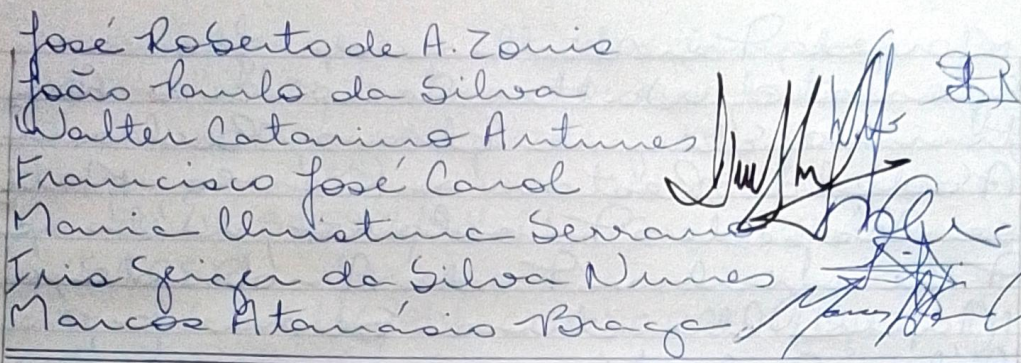 José Roberto de A. Zonis
João Paulo da Silva
Walter Catarino Antunes
Francisco José Carol
Maria Christina Serrano
Iris Geiger da Silva Nunes
Marcos Atanásio Braga